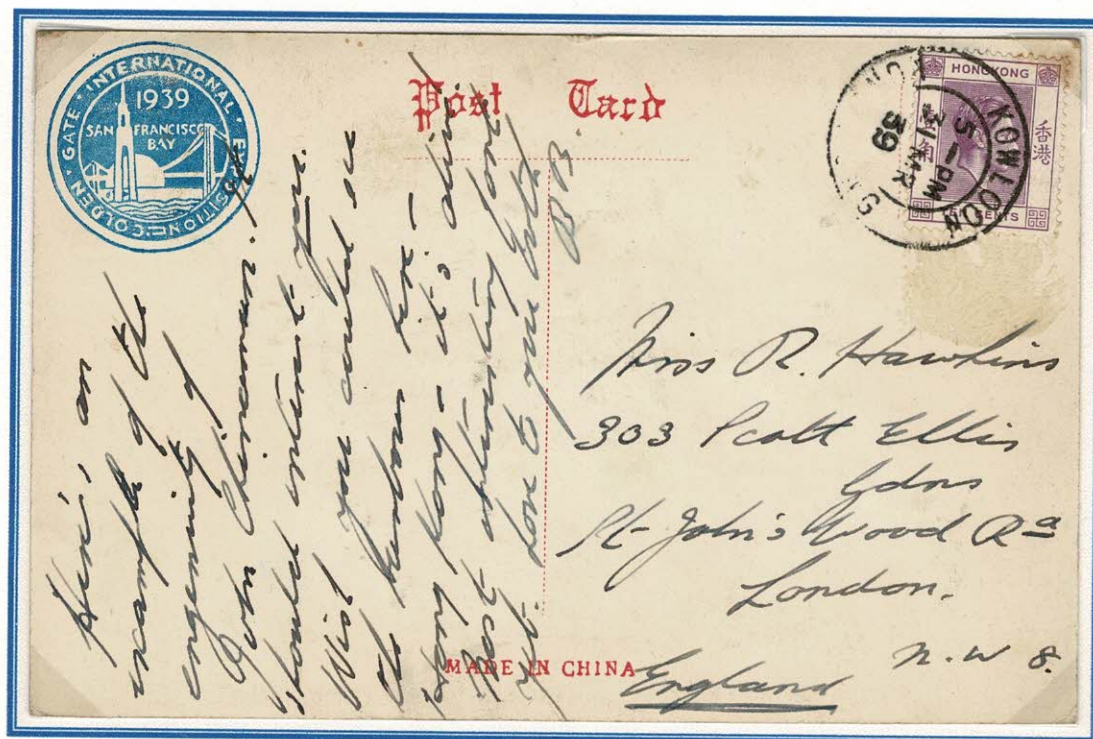 GOLDEN GATE INTERNATIONAL EXPOSITION
1939
SAN FRANCISCO
BAY
Post Card
HONGKONG
香港
角
CENTS
KOWLOON
HONG
5 - PM
31 MR
39
Here's an
example of the
ingenuity of
John Chinaman. It
should interest you.
Wish you could see
the harbour here -
Hong Kong - it's
most interesting
Love to you both
Miss R. Hawkins
303 Scott Ellis
Gdns
St John's Wood Rd
London.
N.W 8.
England
MADE IN CHINA